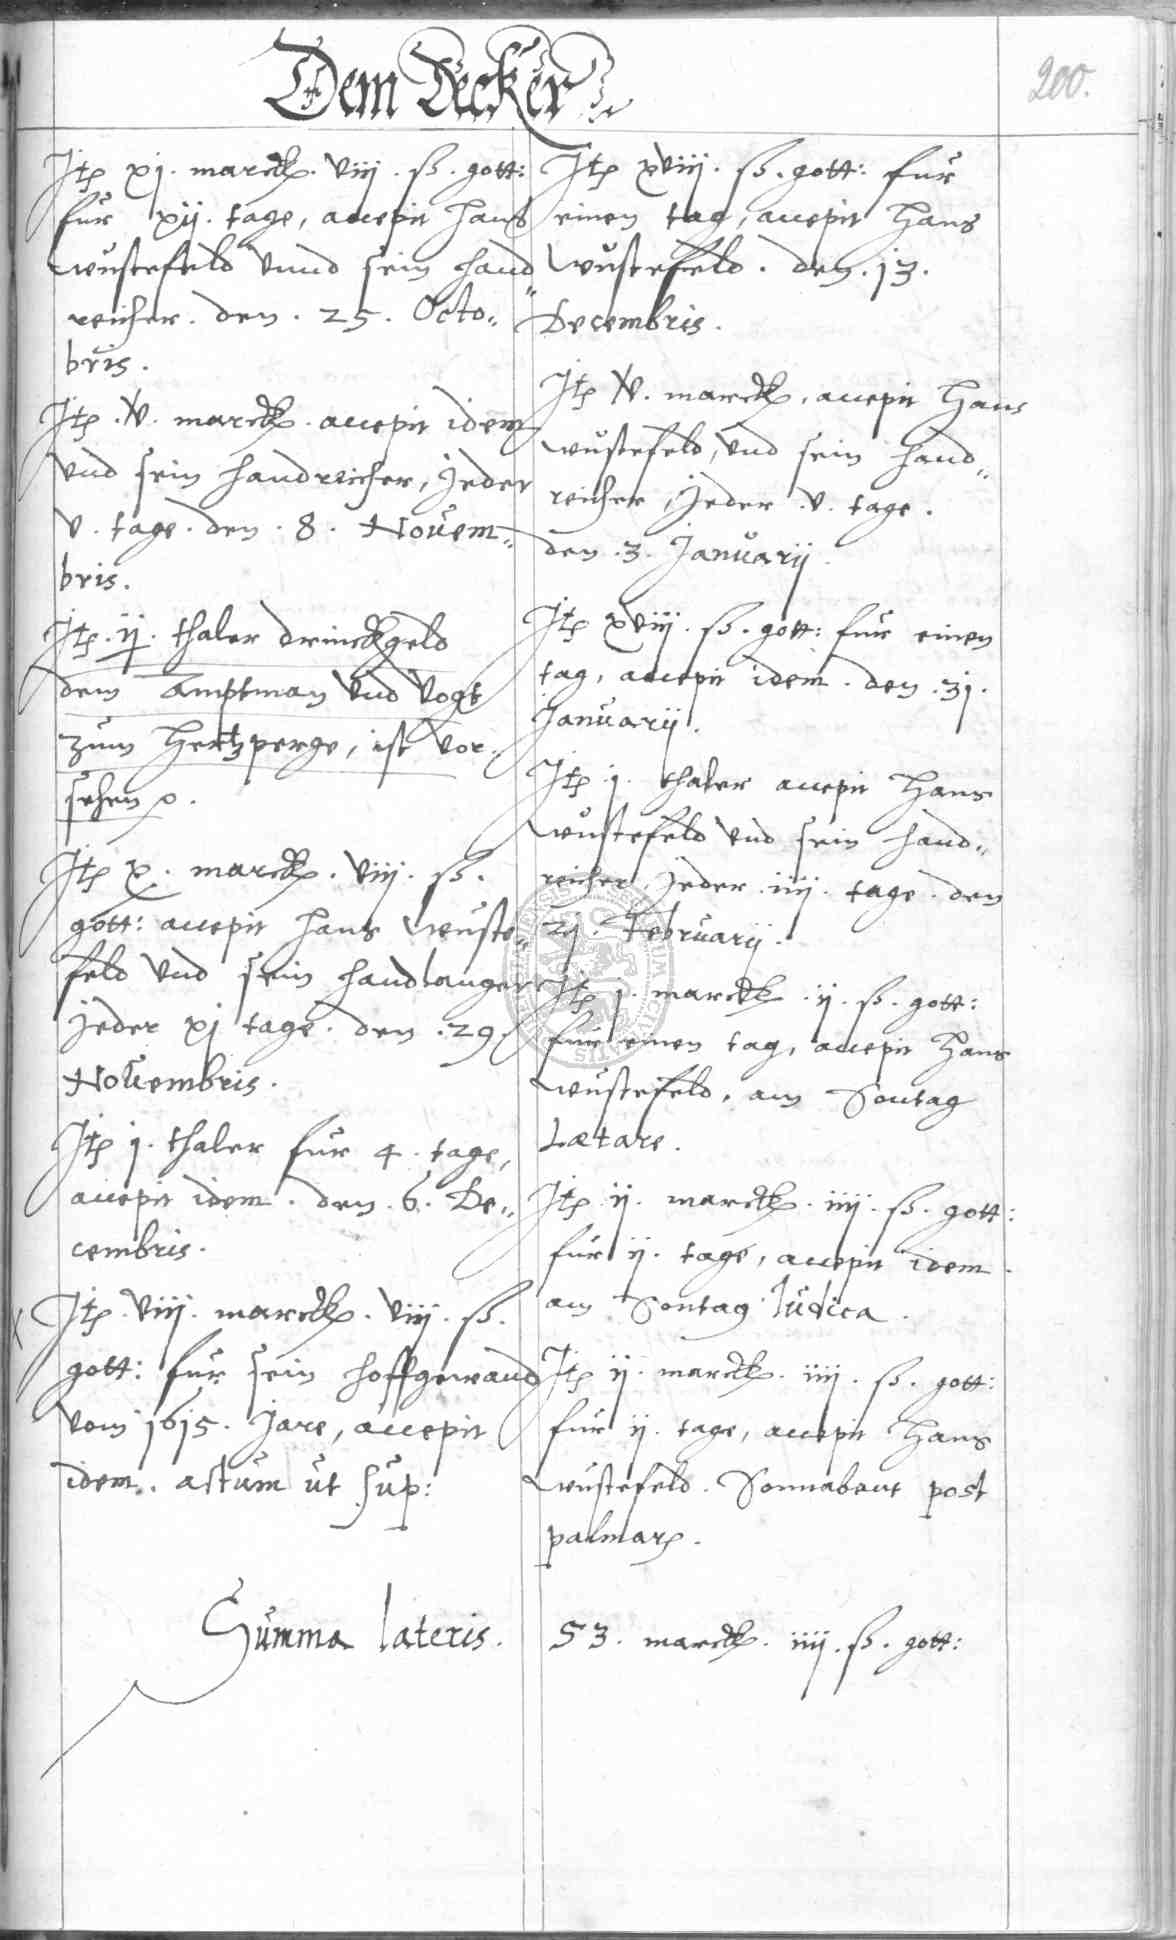 Dem Decker
200.
Jtem xj. marck. viij. ß. gott:
für xij. tage, accepit Hans
wüstefeld vnnd sein hand„
reicher. den. 25. Octo„
bris.
Jtem .v. marck. accepit idem
vnd sein handreicher, jeder
v. tage. den. 8. Novem„
bris.
Jtem .ij. thaler drinckgeld
dem Amptman vnd Vogt
zum Hertzperge, ist vor
sehen
Jtem x. marck. viij. ß.
gott: accepit Hans Wüste„
feld vnd sein handlanger
jeder xj tage. den. 29.
Novembris.
Jtem j. thaler für 4. tage,
accepit idem. den. 6. De„
cembris.
Jtem .viij. marck. viij. ß.
gott: für sein hoffgewand
vom 1615. Jare, accepit
idem. actum ut sup:
Jtem xviij. ß. gott: für
einen tag, accepit Hans
Wüstefeld. den. 13.
Decembris.
Jtem v. marck, accepit Hans
wüstefeld, vnd sein hand„
reicher, jeder .v. tage.
den. 3. Januarij.
Jtem xviij. ß. gott: für einen
tag, accepit idem. den. 31.
Januarij.
Jtem j. thaler accepit Hans
wüstefeld vnd sein hand„
reicher, jeder. iiij. tage. den
21. Februarij.
Jtem j. marck .ij. ß. gott:
für einen tag, accepit Hans
wüstefeld, am Sontag
Lætare.
Jtem ij. marck. iiij. ß. gott:
für ij. tage, accepit idem.
am Sontag Judica.
Jtem ij. marck. iiij. ß. gott:
für ij. tage, accepit Hans
wüstefeld. Sonnabent post
palmarum.
Summa lateris. 53. marck. iiij. ß. gott: